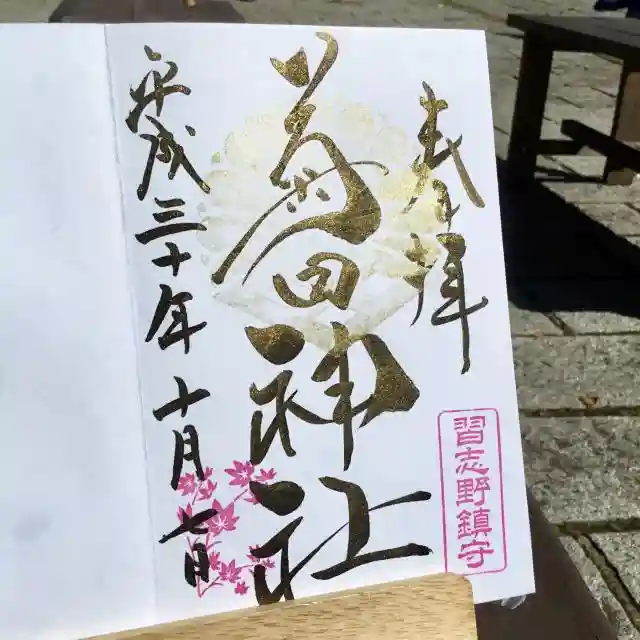 奉拝
習志野鎮守
菊田神社
平成三十年十月七日